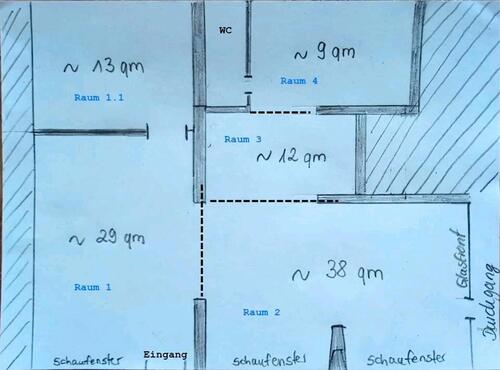 WC
~ 13 qm
Raum 1.1
~ 9 qm
Raum 4
Raum 3
~ 12 qm
~ 29 qm
Raum 1
~ 38 qm
Raum 2
Glasfront
Durchgang
Schaufenster
Eingang
Schaufenster
Schaufenster